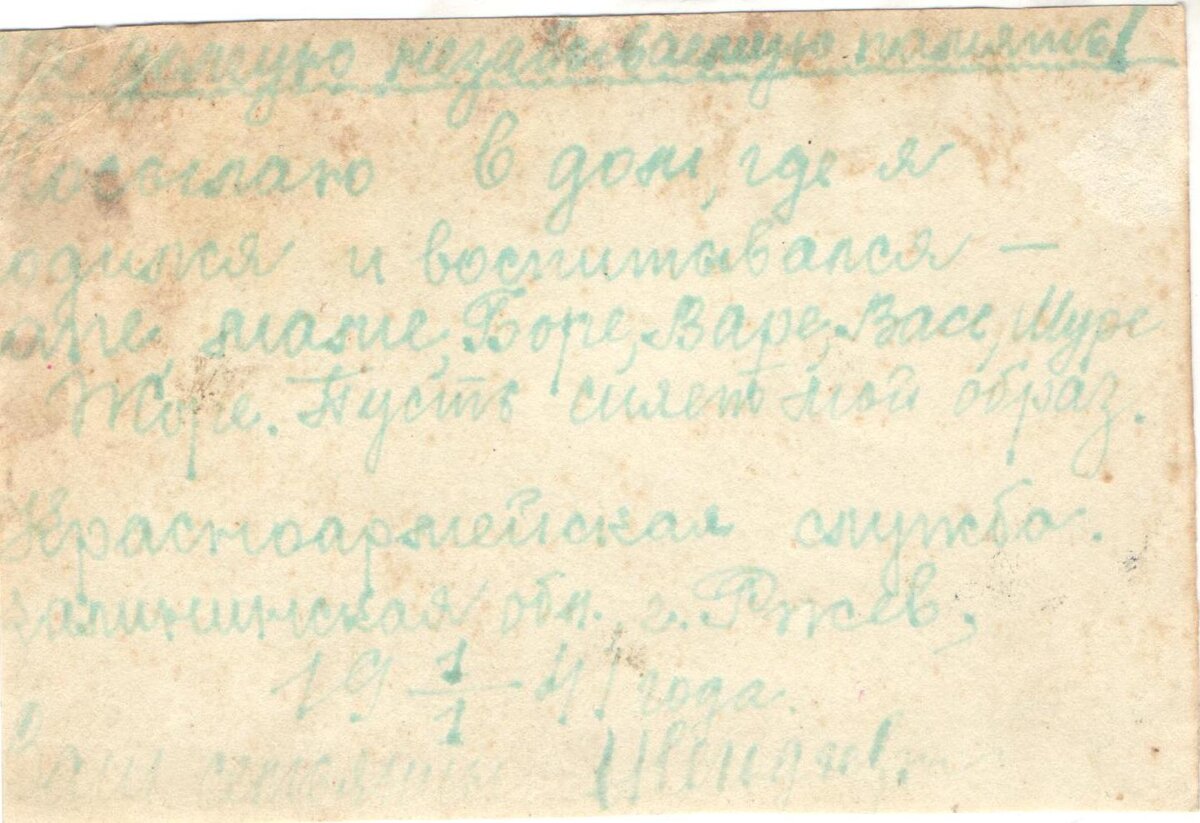 долгую незабываемую память!
посылаю в дом, где я
родился и воспитывался —
папе, маме, Боре, Варе, Васе, Шуре
Жоре. Пусть сияет мой образ.
Красноармейская служба.
Калининская обл. г. Ржев,
19 1/1 41 года.
Ваш